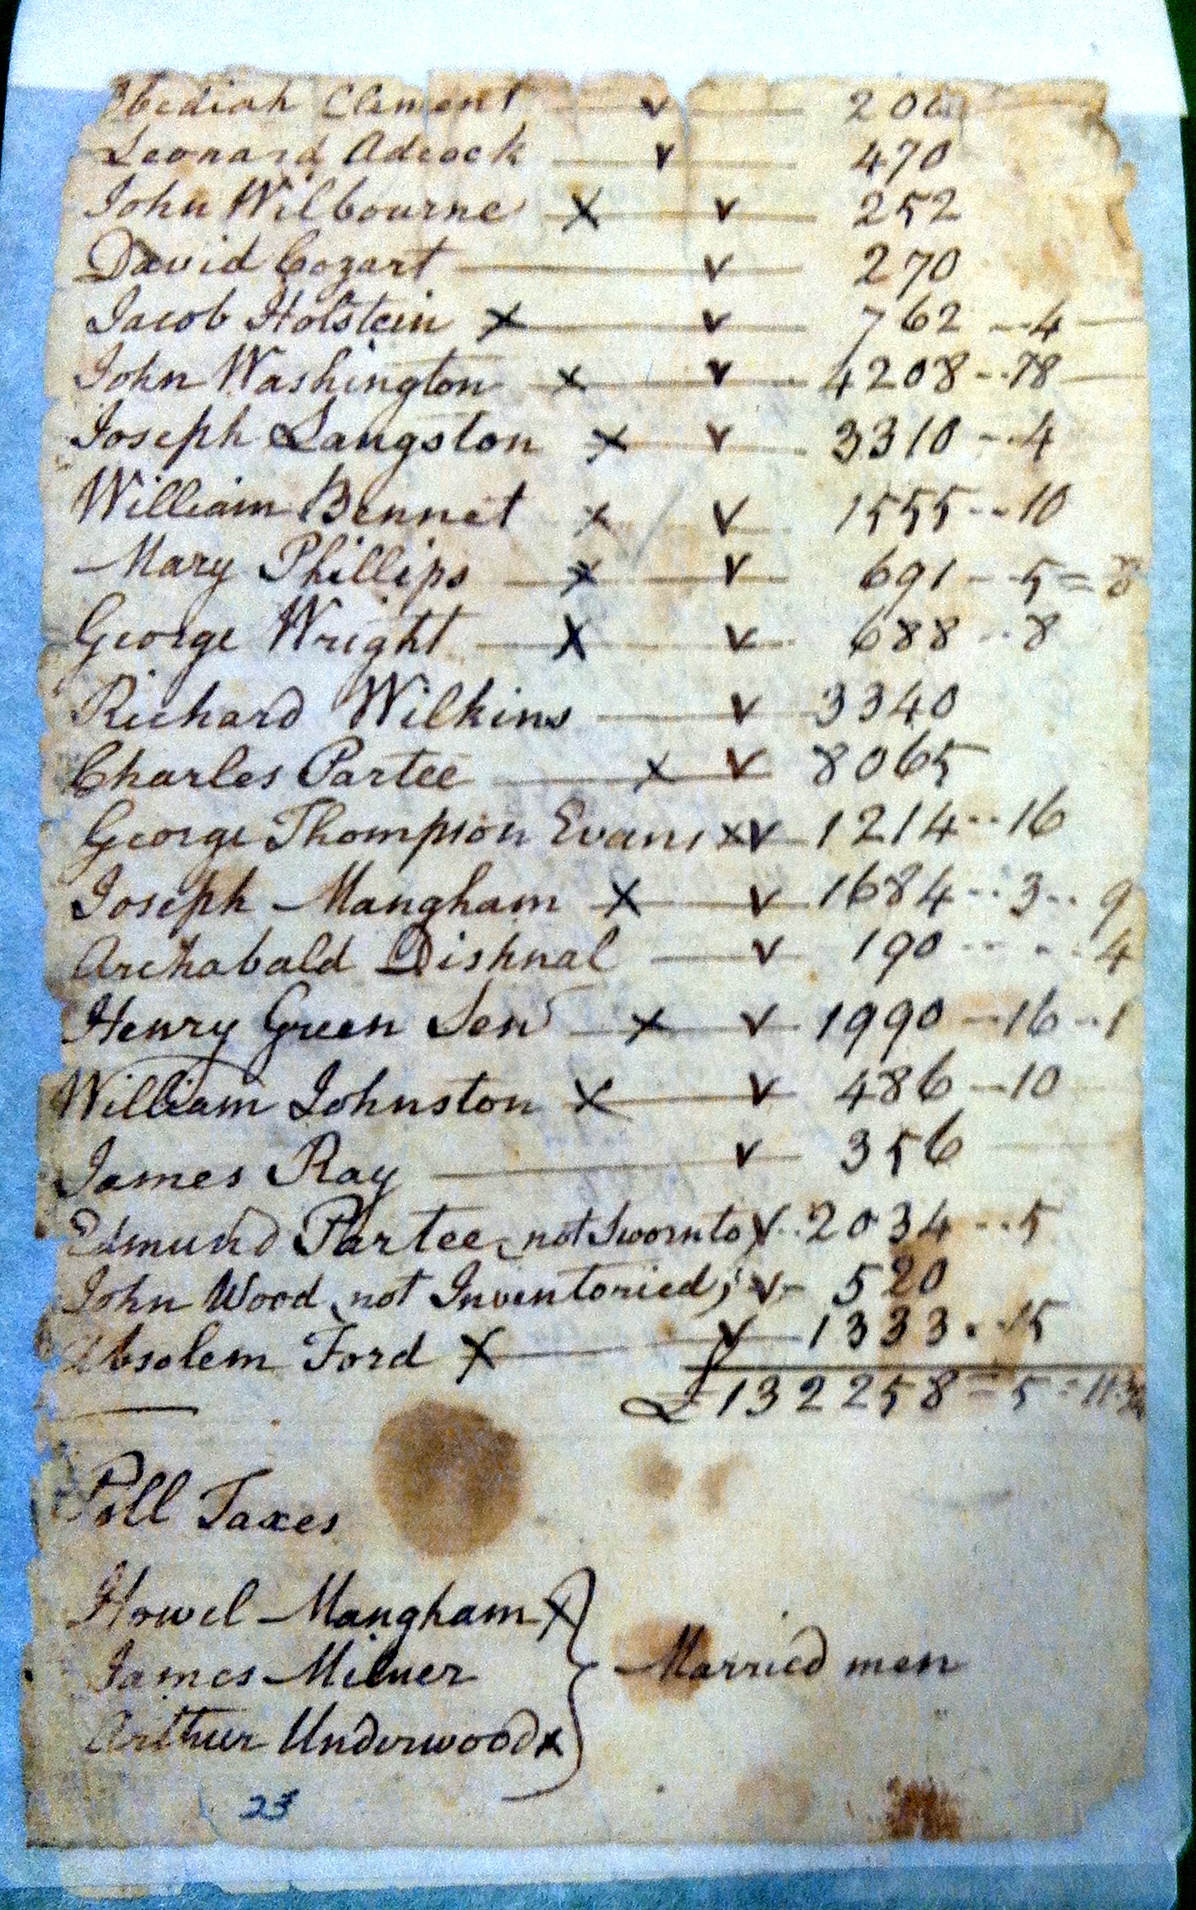 Obediah Clement v 206
Leonard Adcock v 470
John Wilbourne X v 252
David Cozart v 270
Jacob Holstein X v 762 - 4
John Washington X v 4208 - 18
Joseph Langston X v 3310 - 4
William Bennet X v 1555 - 10
Mary Phillips X v 691 - 5 = 8
George Wright X v 688 - 8
Richard Wilkins v 3340
Charles Partee X v 8065
George Thompson Evans X v 1214 - 16
Joseph Mangham X v 1684 - 3 - 9
Archabald Dishnal v 190 - - 4
Henry Green Senr X v 1990 - 16 - 1
William Johnston X v 486 - 10
James Ray v 356
Edmund Partee, not Sworn to v 2034 - 5
John Wood, not Inventoried; v 520
Absolem Ford X v 1333 - 15
£132258 = 5 = 11
Poll Taxes
Howel Mangham X
James Milner } Married men
Arthur Underwood X
23